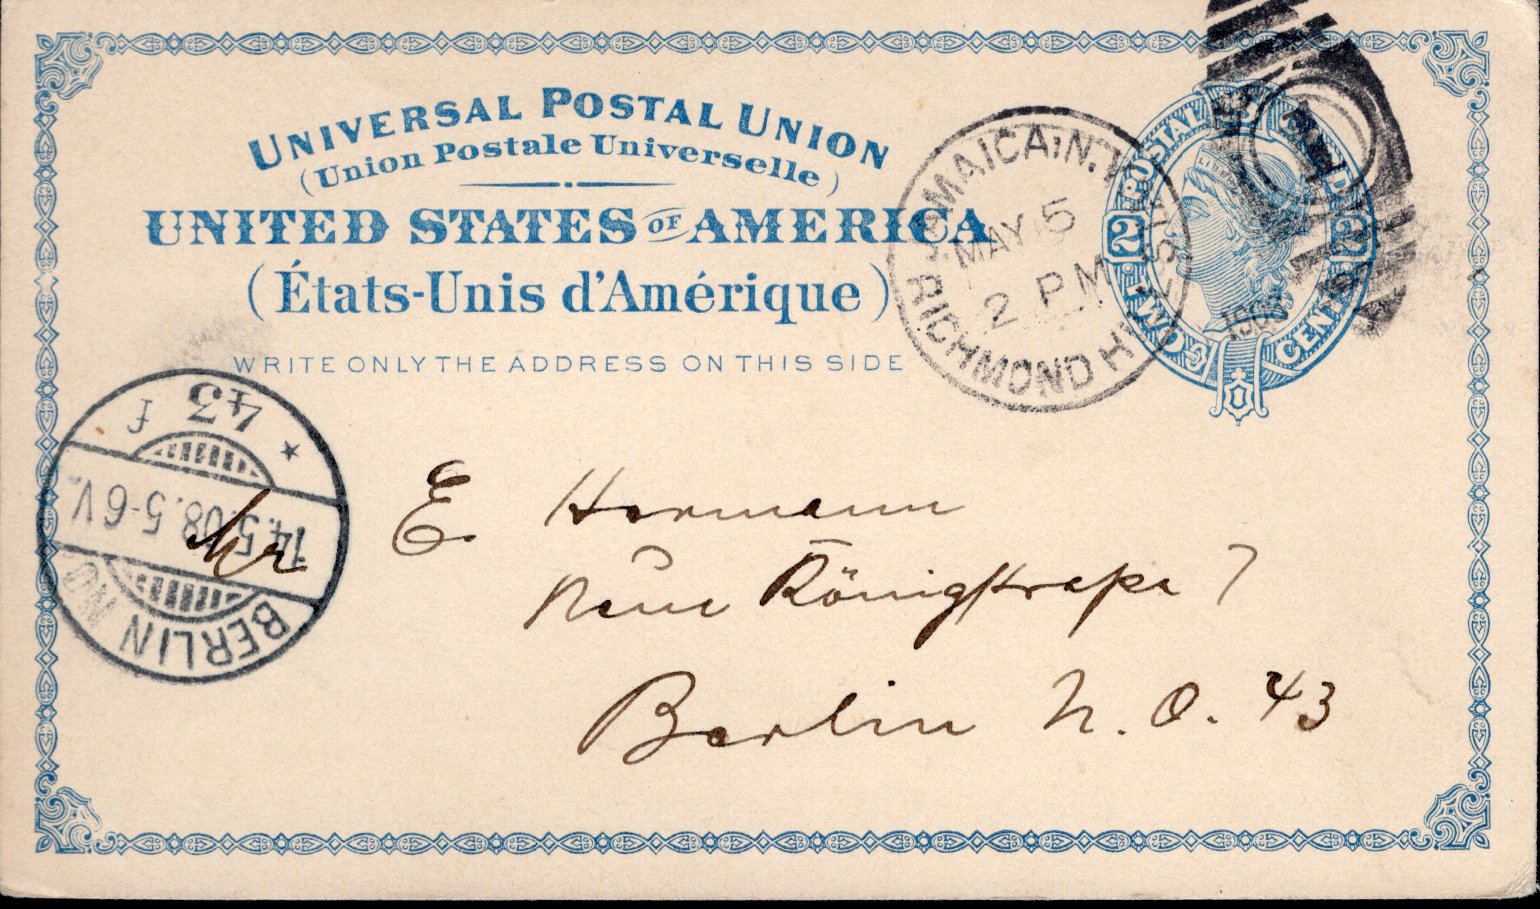 UNIVERSAL POSTAL UNION
(Union Postale Universelle)
UNITED STATES OF AMERICA
(États-Unis d'Amérique)
WRITE ONLY THE ADDRESS ON THIS SIDE
JAMAICA, N.Y.
MAY 5
2 PM
1908
RICHMOND H
POSTAL
2 2
TWO CENTS
43 f
14.5.08. 5-6V.
BERLIN NO
Hr E. Hermann
Neue Königstraße 7
Berlin N. O. 43